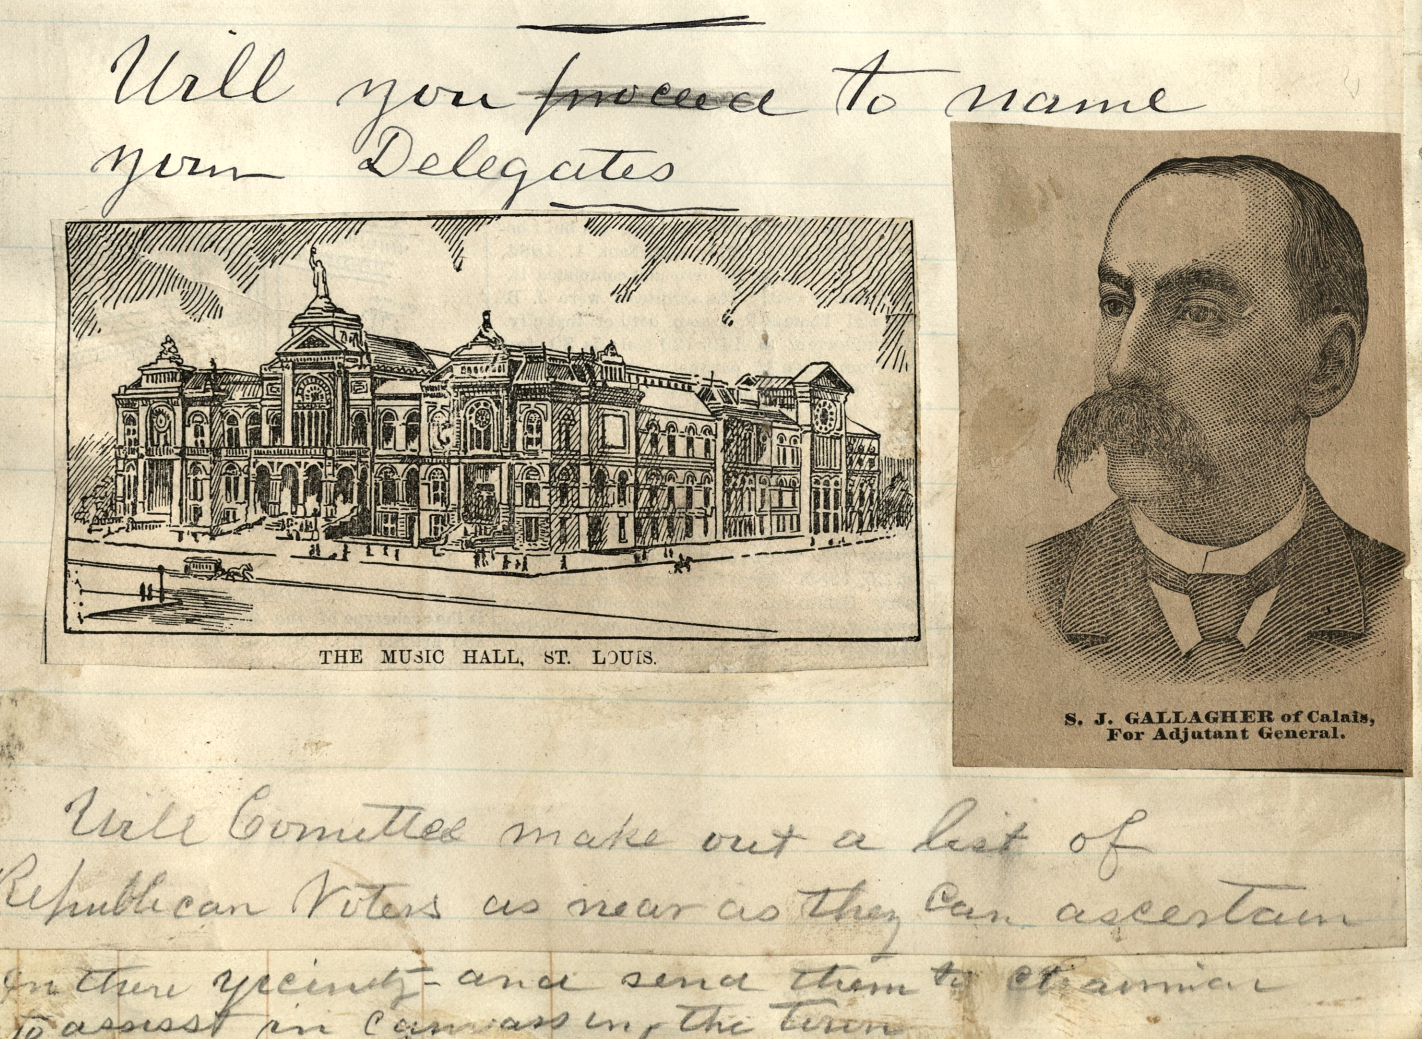 Will you proceed to name
your Delegates
THE MUSIC HALL, ST. LOUIS.
S. J. GALLAGHER of Calais,
For Adjutant General.
Will Comittee make out a list of
Republican Voters as near as they Can ascertain
in there vicinity and send them to chairman
to assist in canvassing the town